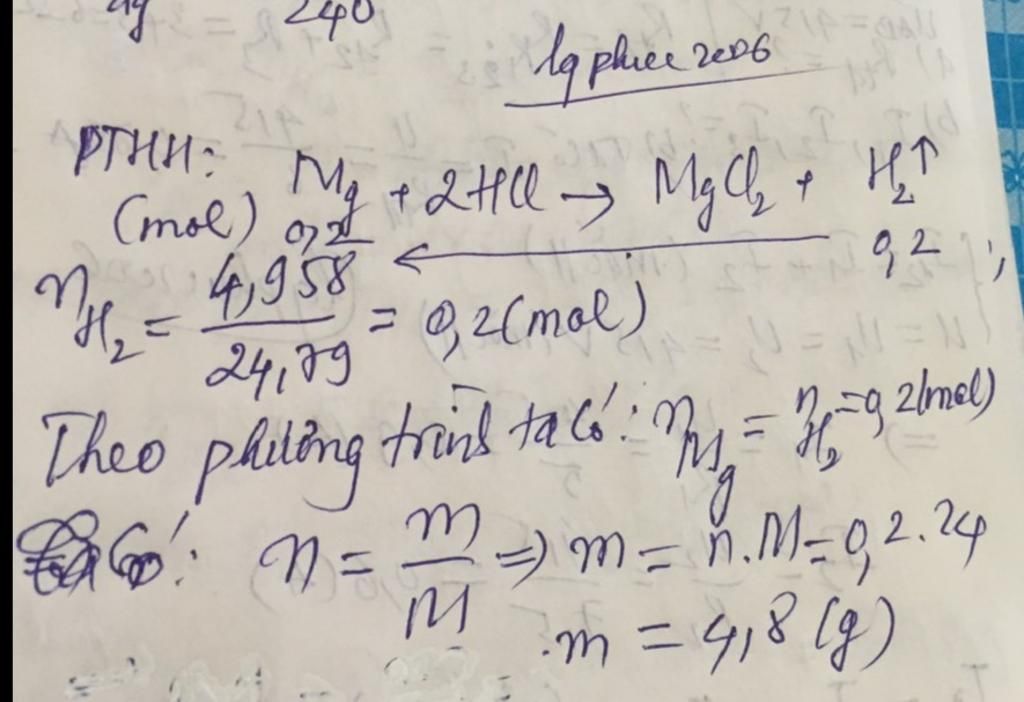 240
lqphuc2006
PTHH: Mg + 2HCl → MgCl₂ + H₂↑
(mol) 0,2 ← 0,2 ;
n_H₂ = 4,958/24,79 = 0,2(mol)
Theo phương trình ta có: n_Mg = n_H₂ = 0,2(mol)
Có: n = m/M => m = n.M = 0,2.24
m = 4,8 (g)